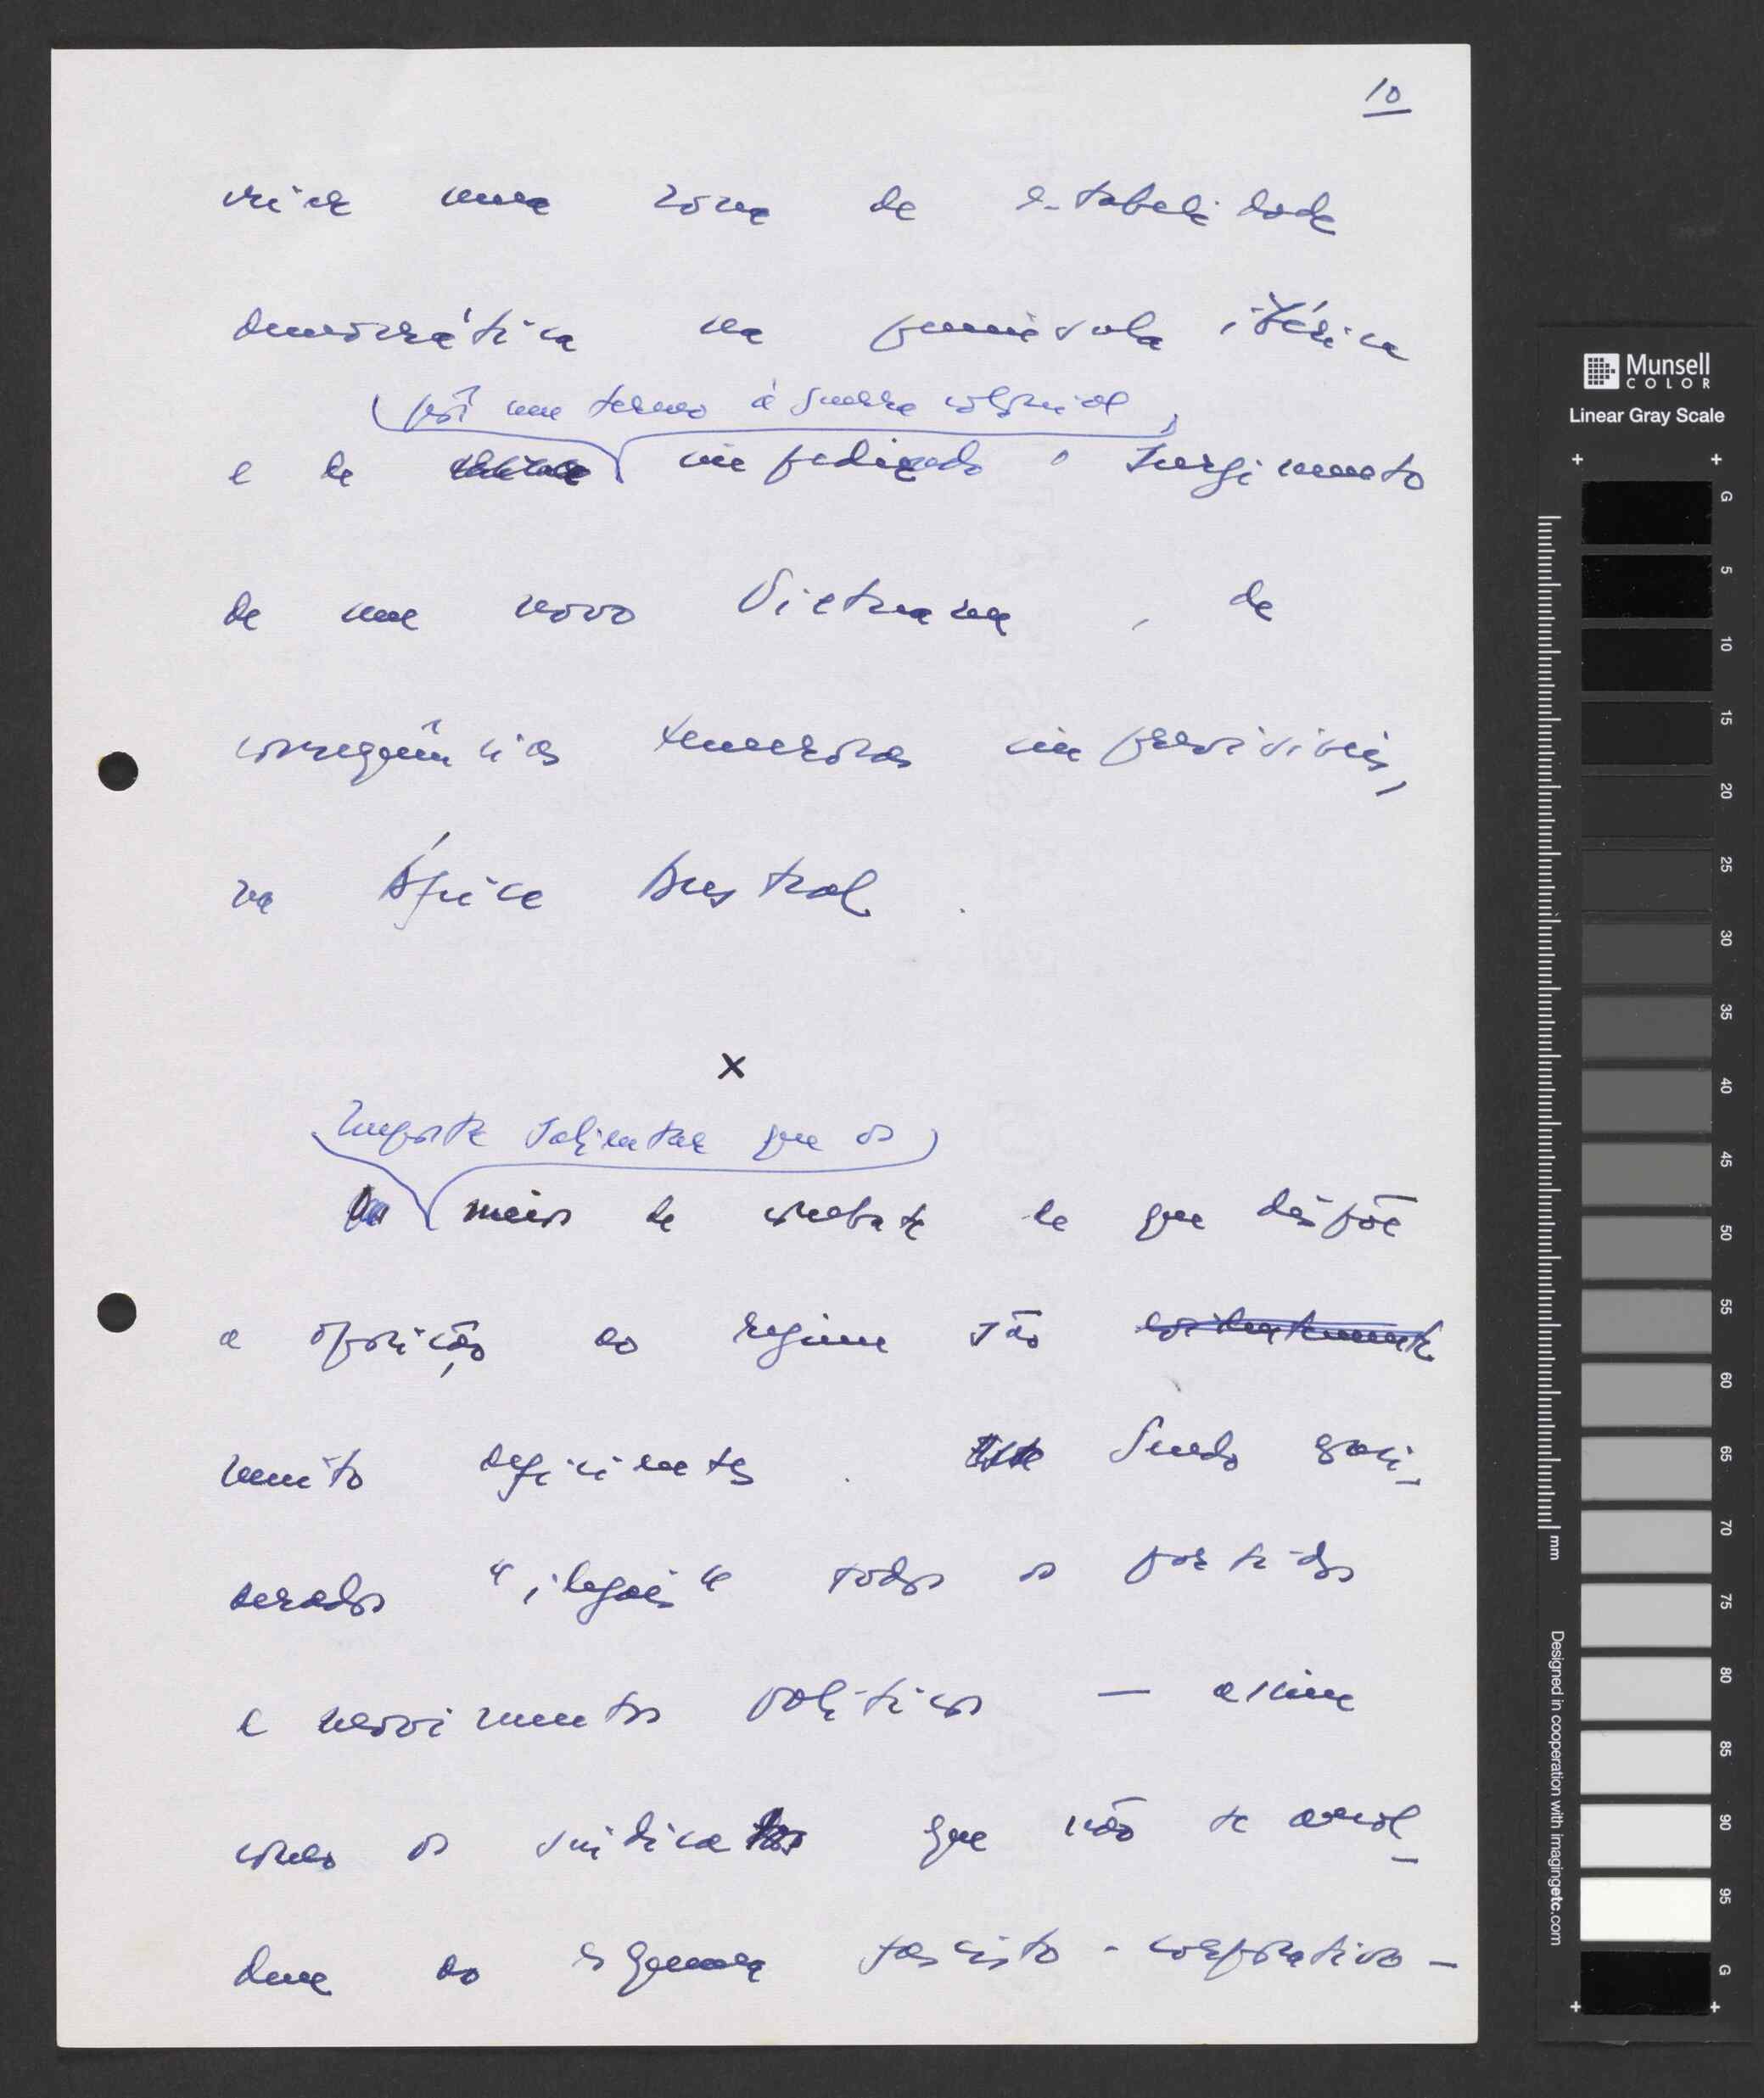 10
uma zona de estabilidade
democrática na península ibérica
pôr um termo à guerra colonial,
e de impedindo o surgimento
de um novo Vietnam, de
consequências temerosas imprevisíveis,
na África Austral.
x
Importa salientar que os
meios de combate de que dispõe
a oposição ao regime são evidentemente
muito deficientes. Sendo consi-
derados "ilegais" todos os partidos
e movimentos políticos — assim
como os sindicatos que não se amol-
dem ao esquema fascisto-corporativo —
Munsell
COLOR
Linear Gray Scale
G
5
10
15
20
25
30
35
40
45
50
55
60
65
70
75
80
85
90
95
G
mm
Designed in cooperation with imagingetc.com